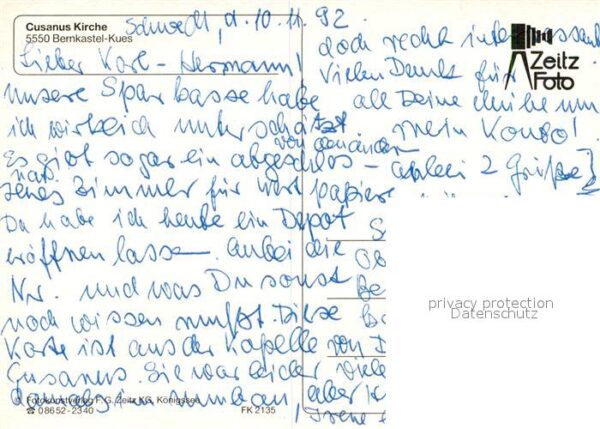 Cusanus Kirche
5550 Bernkastel-Kues
Schwedt, d. 10. 11. 92
Lieber Karl-Hermann!
Unsere Sparkasse habe
ich wirklich unterschätzt.
Es gibt sogar ein abgeschlos-
senes Zimmer für Wertpapiere
Da habe ich heute ein Depot
eröffnen lassen. Anbei die
Nr. und was Du sonst
noch wissen mußt. Diese
Karte ist aus der Kapelle von
Cusanus. Sie war leider
damals im Umbau, aber
Irene
doch recht interessant
Vielen Dank für
all Deine Mühe um
mein Konto!
anbei 2 Grüße
Zeitz
Foto
privacy protection
Datenschutz
© Fotokunstverlag F. G. Zeitz KG, Königssee
☎ 08652-2340
FK 2135